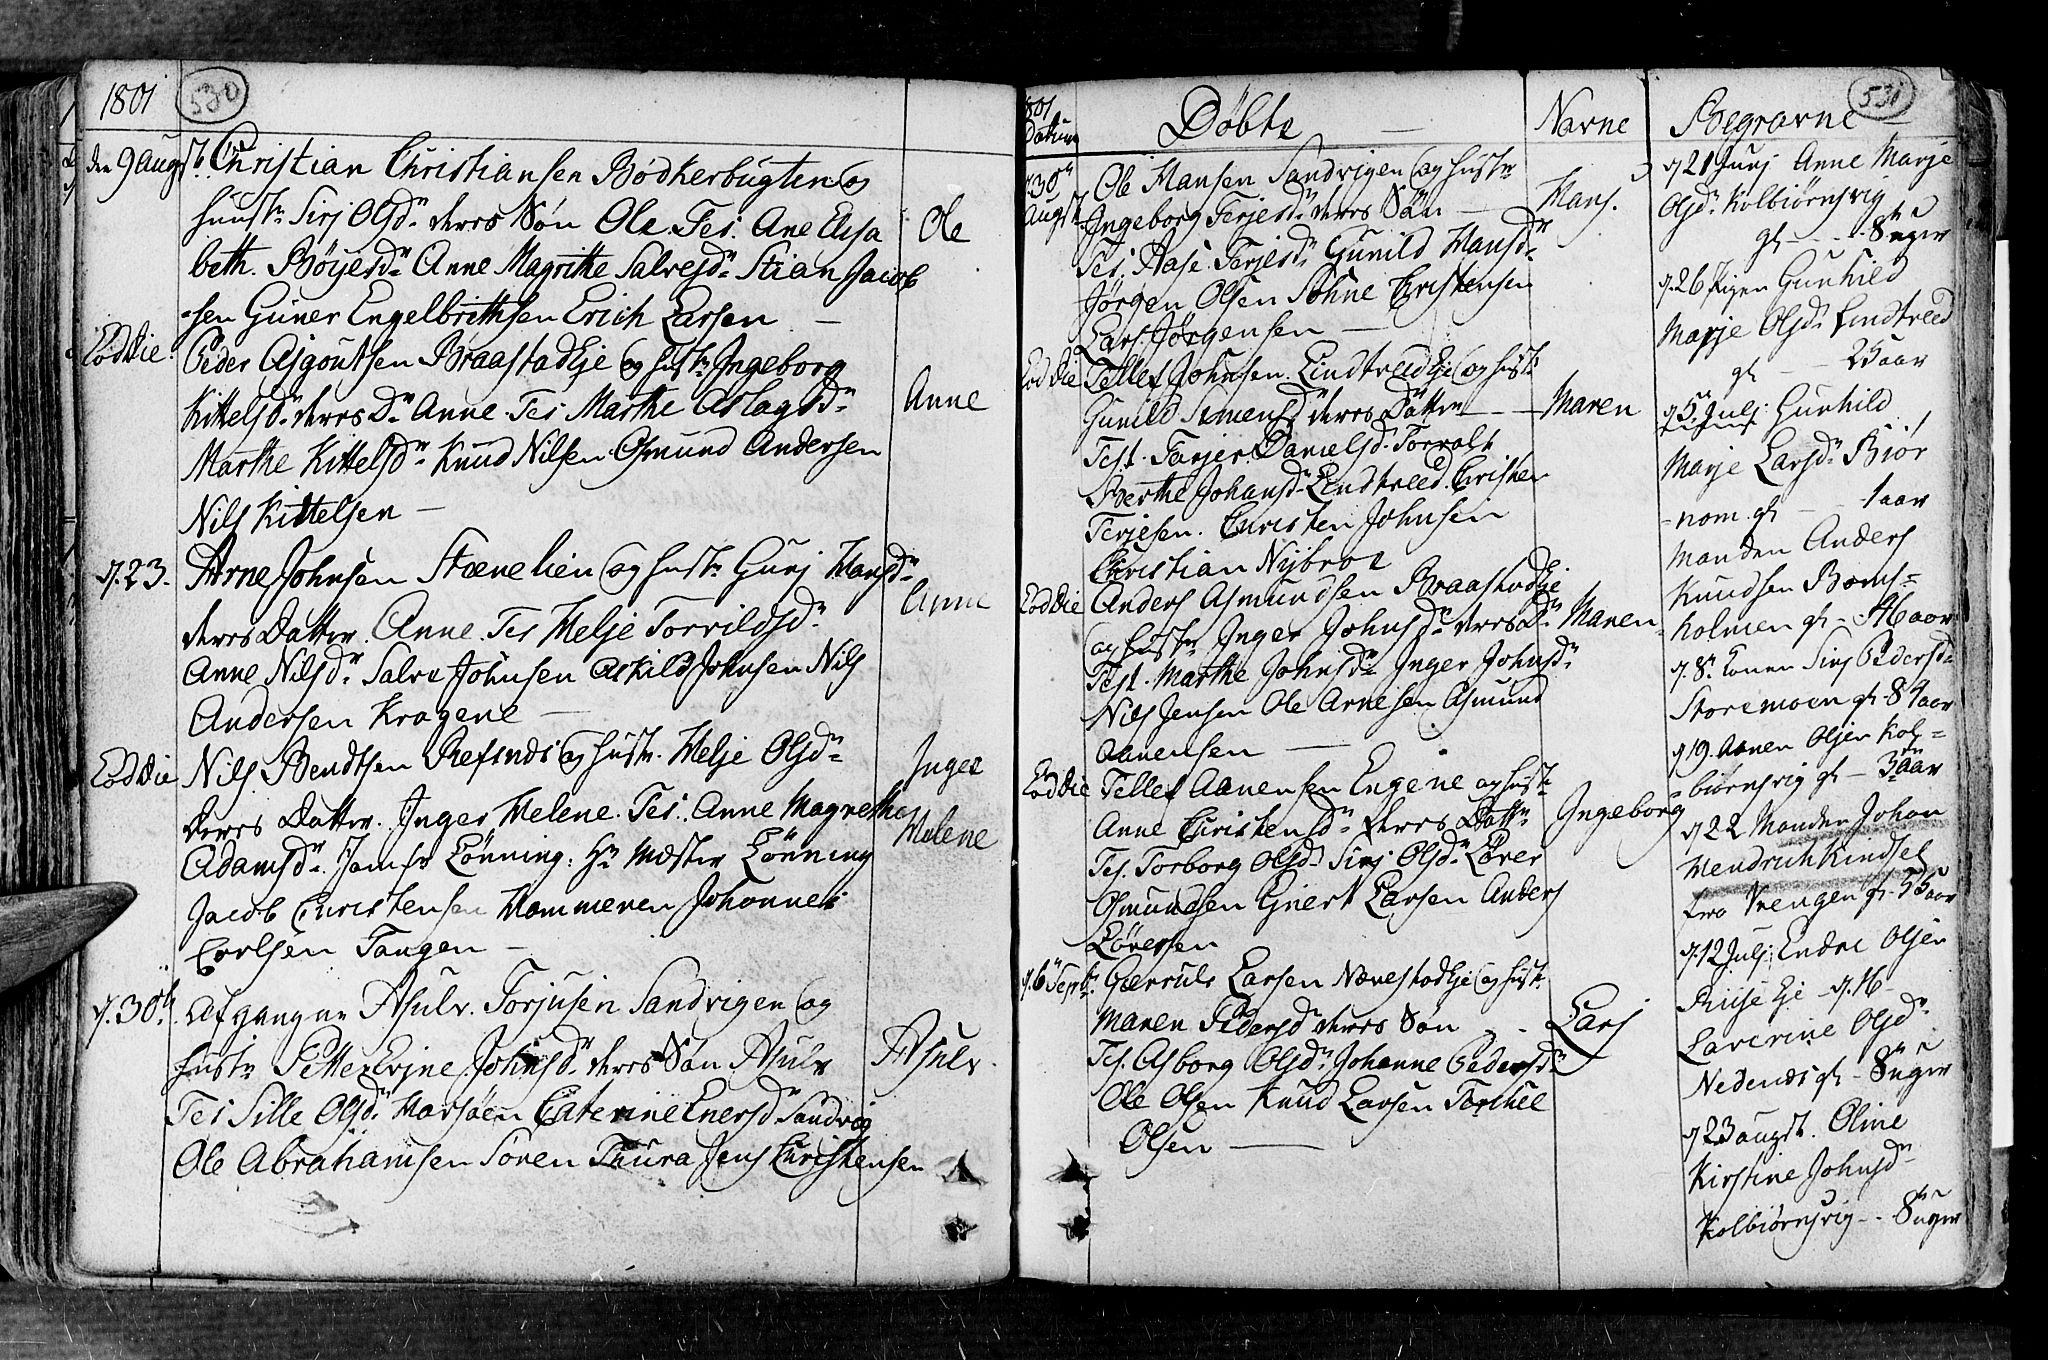 1801
530
den 9 Augst. Christian Christiansen Bødkerbugten og
hustr Sirj Olsd. deres Søn Ole. Tes. Ane Elisa
Ole
beth. Bøyesd. Anne Magrethe Salvesd. Stian Jacob
-sen Guner Engelbrethsen Erich Larsen
Eod Die. Peder Asgoutsen Braastad Eje og hustr Ingeborg
Kittelsd. deres D. Anne. Tes Marthe Aslagsd.
Anne
Marthe Kittelsd. Knud Nilsen. Osmund Andersen
Nils Kittelsen
d. 23. Arne Johnsen Steenelien og hustr Gurj Hansd.
Anne
deres Datter. Anne. Tes Helje Torvildsd.
Anne Nilsd. Salve Johnsen Askild Johnsen Nils
Andersen Kragene
Eod Die Nils Bendtsen Refsnes og hustr. Helje Olsd.
Inger
Helene
deres Datter. Inger Helene. Tes. Anne Magrethe
Adamsd. Jomfr Lønning: Hr Mester Lønning
Jacob Christensen Hammeren Johannes
Carlsen Tangen
d. 30th. Afgangne Asulv. Torjusen Sandvigen og
hustr Johnsd. deres Søn Asulv
Asulv.
Tes Sille Olsd. Marsøen Caterine Enersd. Sandvig
Ole Abrahamsen Søren Thura Jens Christensen
1801
Datum
Døbte
Navne
Begravne
531
d. 30
Augst.
Ole Hansen Sandvigen og hustr
Ingeborg Terjesd. deres Søn
Hans.
Tes. Aase Terjesd. Gunild Hansd.
Jørgen Olsen Søhne Christensen
Lars Jørgensen
Eod Die Tellef Johnsen Lindtveed Eje og hust.
Gunild Simensd. deres Datter
Maren
Test. Tarjer Danielsd. Torvolt
Berthe Johansd. Lindtveed. Christen
Terjesen. Christen Johnsen
Christian Nybroe
Eod Die Anders Asmundsen Braastad Eje
og hustr Inger Johnsd. deres D.
Maren
Test. Marthe Johnsd. Inger Johnsd.
Nils Jensen Ole Arnesen Asmund
Aanensen
Eod Die Tellef Aanensen Engene og hust.
Anne Christensd. deres Datt.
Ingeborg
Tes. Torborg Olsd. Sirj Olsd. Løver
Osmundsen Gjert Larsen Anders
Løversen
d. 6 Septr. Larsen Nævestad Eje og hust.
Maren Pedersd. deres Søn
Lars
Tes. Asborg Olsd. Johanne Pedersd.
Ole Olsen Knud Larsen Torchel
Olsen
d 21 Junj Anne Marje
Olsd. Kolbiørnsvig
gl - - - 8 uger
d. 26 Pigen Gunhild
Marje Olsd. Lindtveed
gl - - 25 aar
d 5 Julj. Gunhild
Marje Larsd. Biør
-nom. gl - - 1 aar
Manden Anders
Knudsen Boms=
holmen gl - 46 aar
d. 8. Konen Sirj Pedersd.
Storemoen gl. 84 aar
d 19. Aanen Olsen Kol=
biørnsvig gl - 3 aar
d 22 Manden Johan
Hendrich Kindsel
fra Vrengen gl. 55 aar
d. 12 Julj. Endre Olsen
Riise Eje - d. 16
Laverine Olsd.
Nedenes gl - 8 uger
d 23 augst. Oline
Kirstine Johnsd.
Kolbiørnsvig - - 8 uger